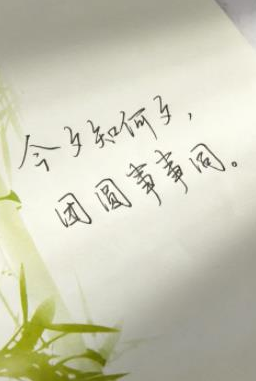 今夕知何夕，
团圆事事同。